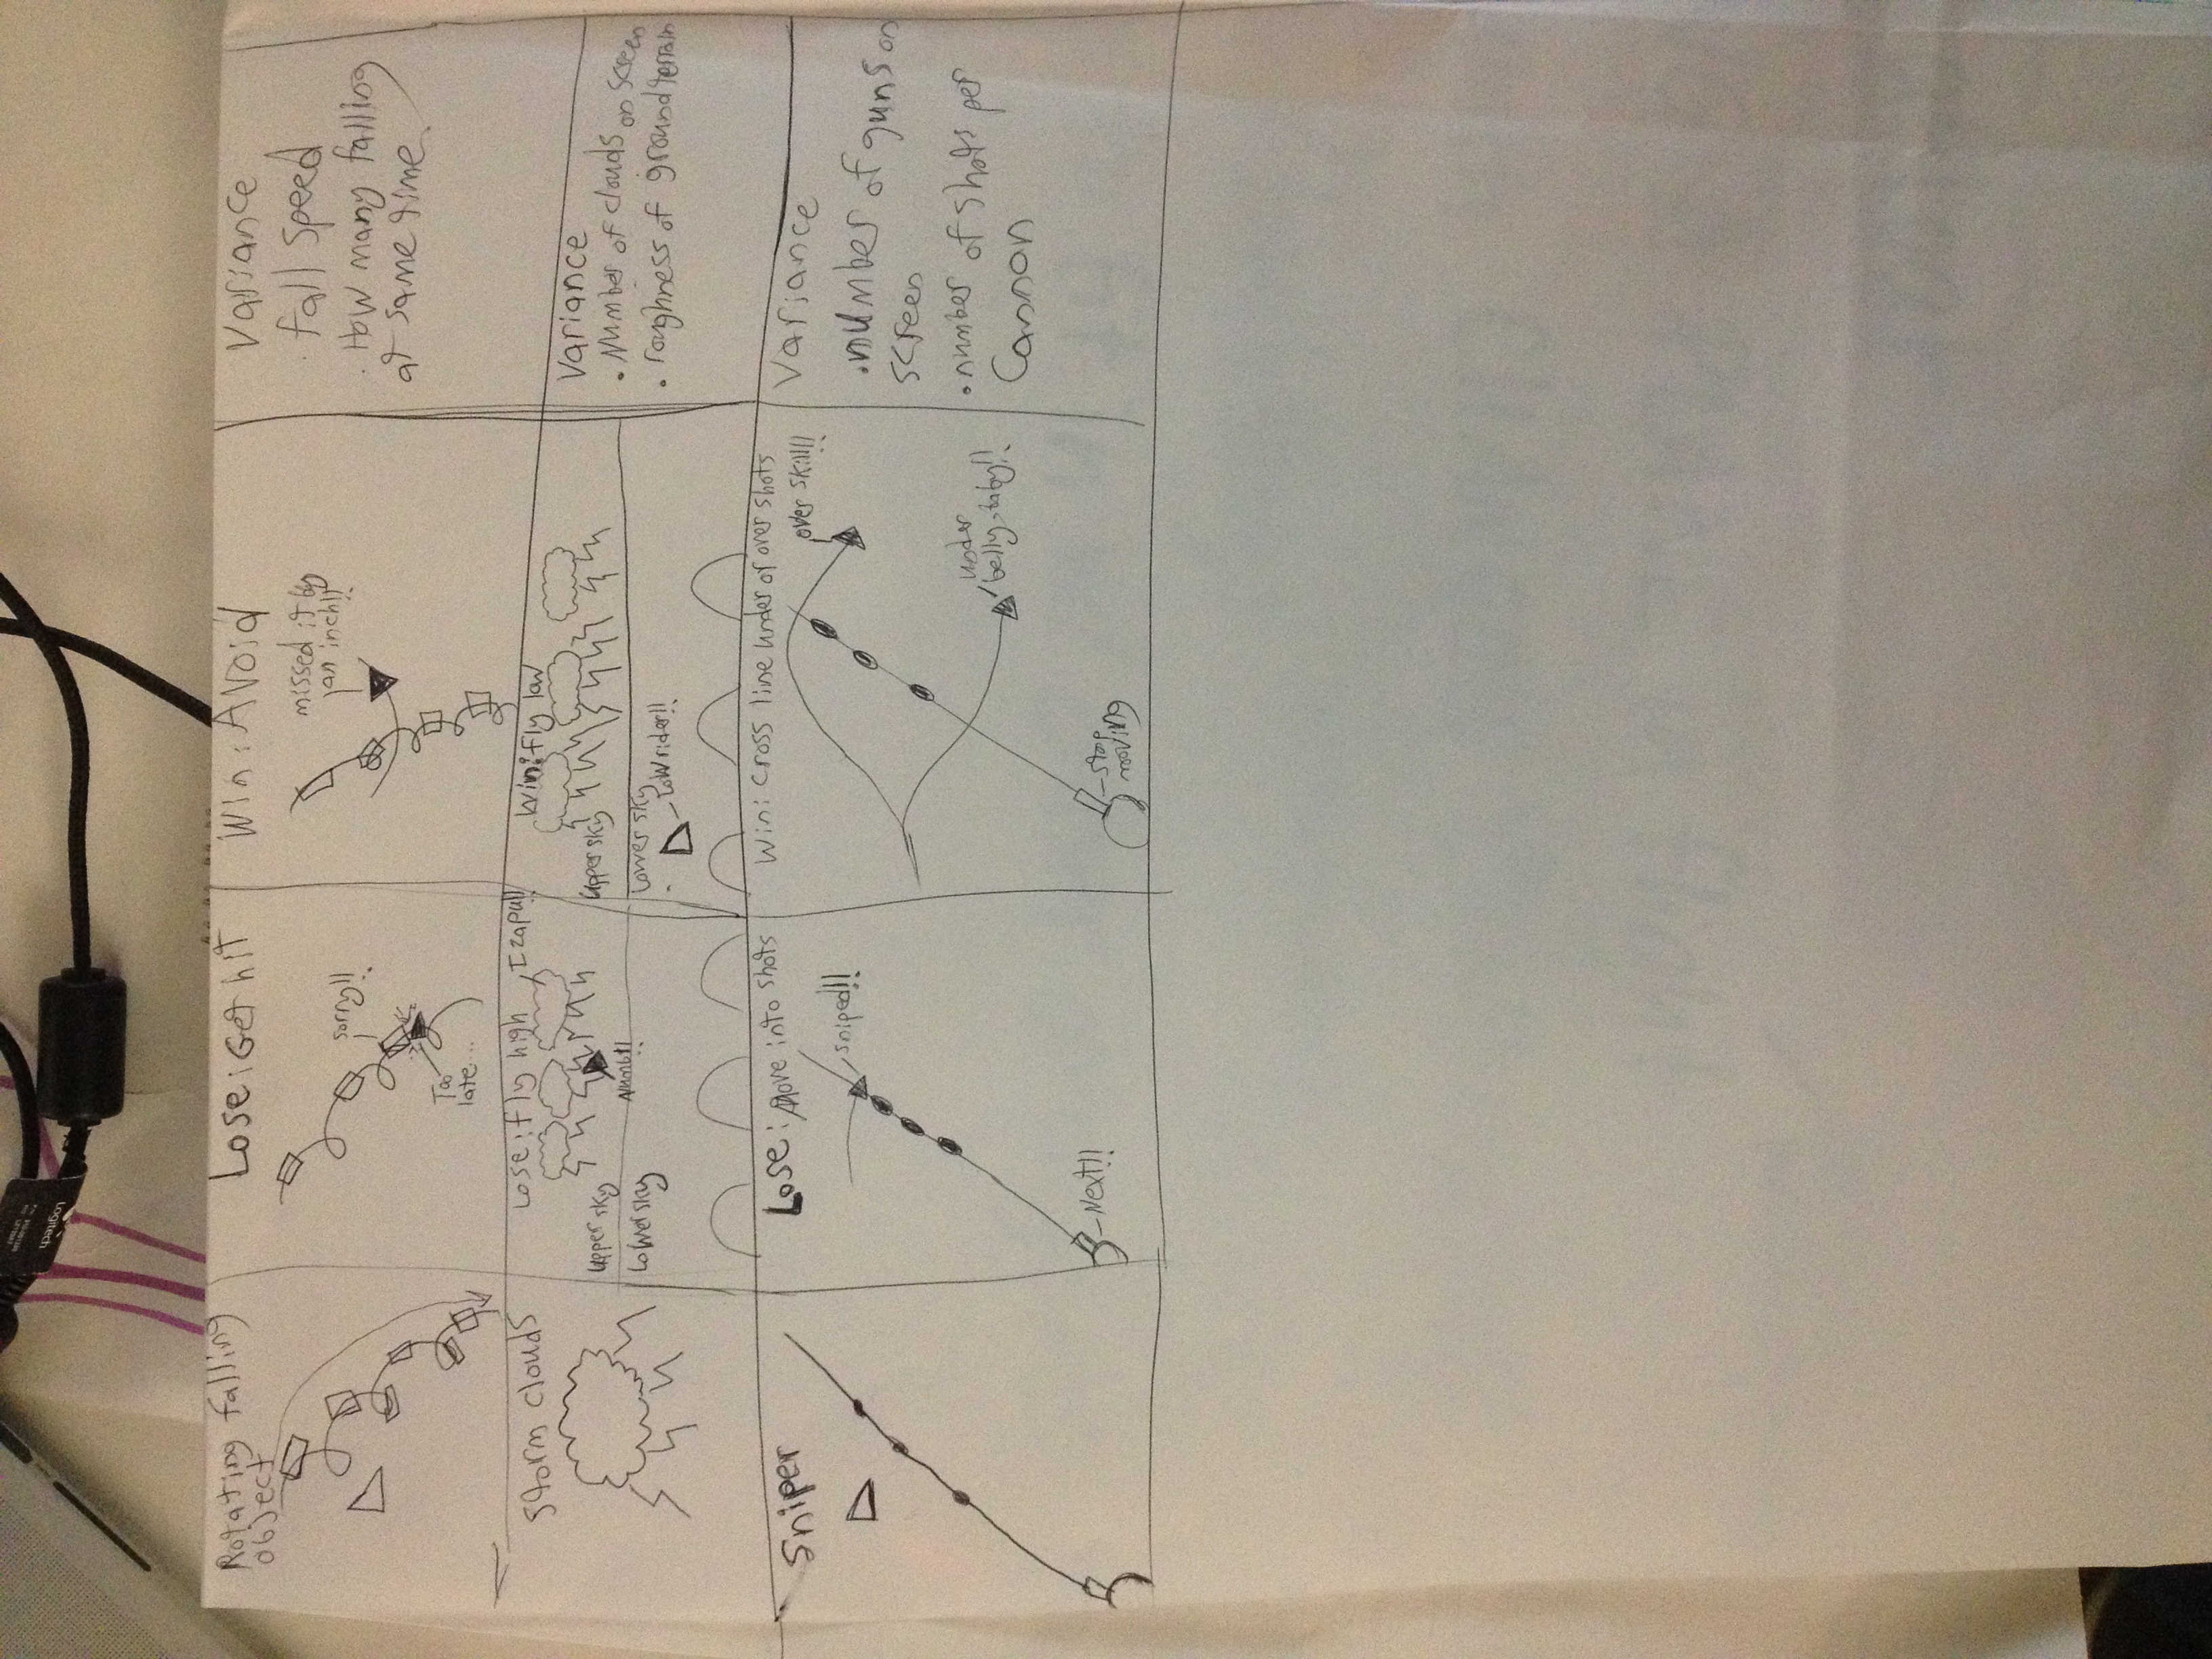 Logitech
Rotating falling
object
Lose: Get hit
sorry!!
Too
late...
Win: Avoid
missed it by
an inch!!
Variance
. fall speed
. How many falling
at same time
Storm clouds
Lose: fly high
I zap u!!
upper sky
Numb!!
Lower sky
Win: fly low
upper sky
Lower sky
Low rider!!
Variance
. Number of clouds on screen
. roughness of ground terrain
Sniper
Lose: Move into shots
sniped!!
Next!!
Win: Cross line under or over shots
over skill!!
under
belly, baby!!
stop
moving
Variance
. number of guns on
screen
. number of shots per
Cannon